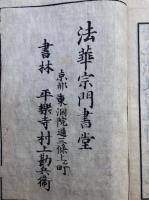 法華宗門書堂
京都東洞院通三條上ル町
書林 平樂寺村上勘兵衞